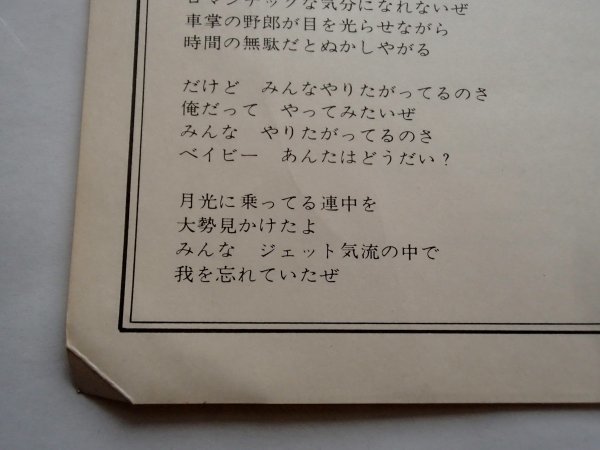 ロマンチックな気分になれないぜ
車掌の野郎が目を光らせながら
時間の無駄だとぬかしやがる
だけど　みんなやりたがってるのさ
俺だって　やってみたいぜ
みんな　やりたがってるのさ
ベイビー　あんたはどうだい？
月光に乗ってる連中を
大勢見かけたよ
みんな　ジェット気流の中で
我を忘れていたぜ